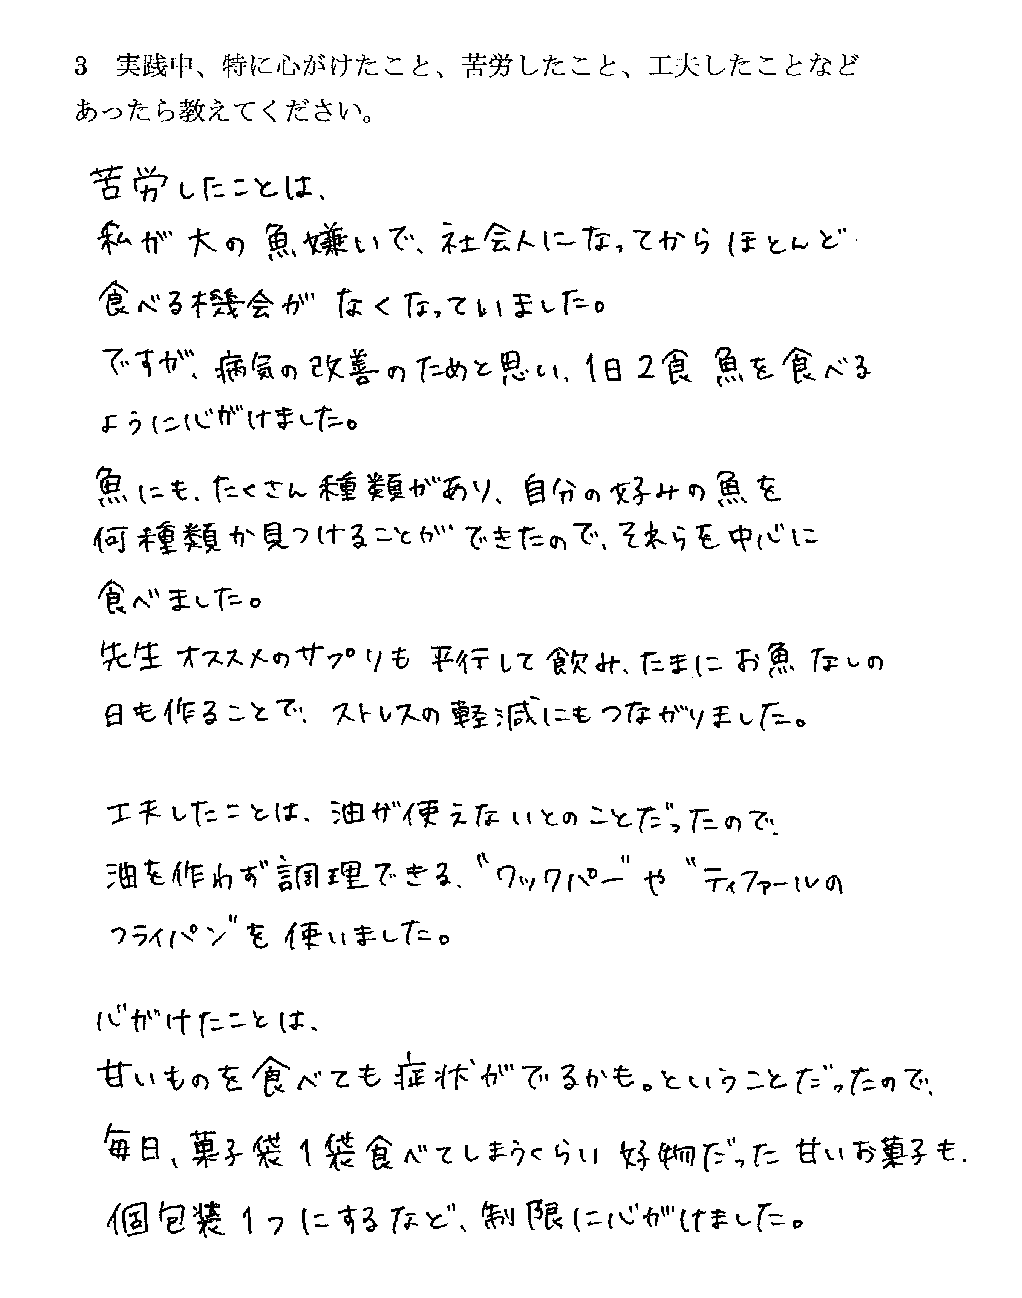 3　実践中、特に心がけたこと、苦労したこと、工夫したことなど
あったら教えてください。
苦労したことは、
私が大の魚嫌いで、社会人になってからほとんど
食べる機会がなくなっていました。
ですが、病気の改善のためと思い、1日2食 魚を食べる
ように心がけました。
魚にも、たくさん種類があり、自分の好みの魚を
何種類か見つけることができたので、それらを中心に
食べました。
先生オススメのサプリも平行して飲み、たまにお魚なしの
日も作ることで、ストレスの軽減にもつながりました。
工夫したことは、油が使えないとのことだったので、
油を作わず調理できる、"クックパー"や"ティファールの
フライパン"を使いました。
心がけたことは、
甘いものを食べても症状がでるかも。ということだったので、
毎日、菓子袋1袋食べてしまうくらい好物だった甘いお菓子も、
個包装1つにするなど、制限に心がけました。